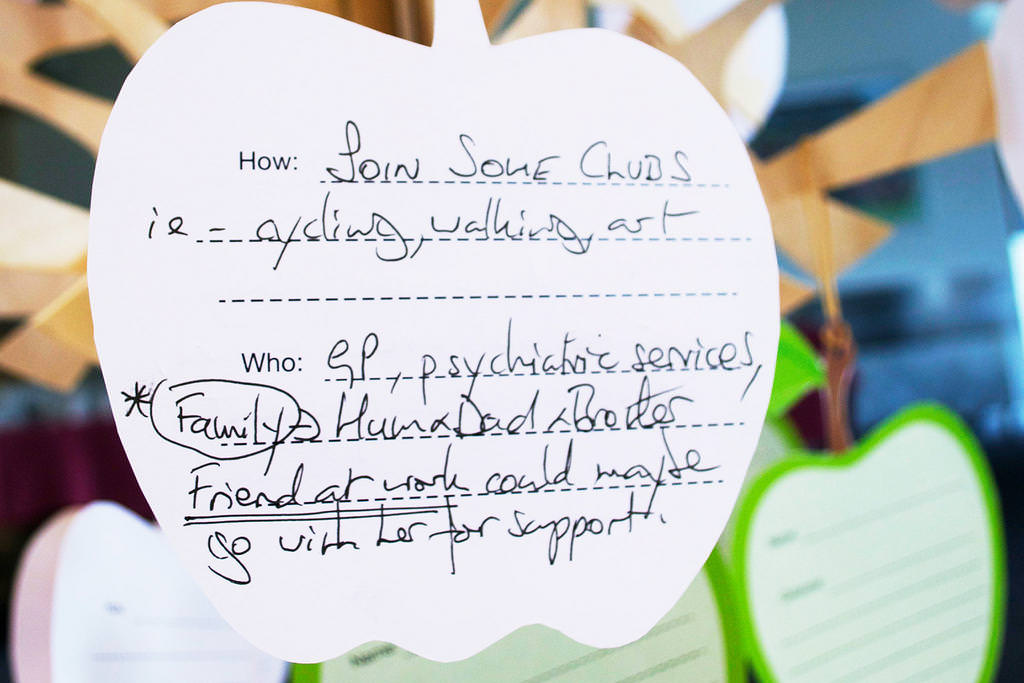 How: JOIN SOME CLUBS
ie - cycling, walking, art
Who: GP, psychiatric services,
* Family → Mum & Dad & Brother
Friend at work could maybe
go with her for support.
Name